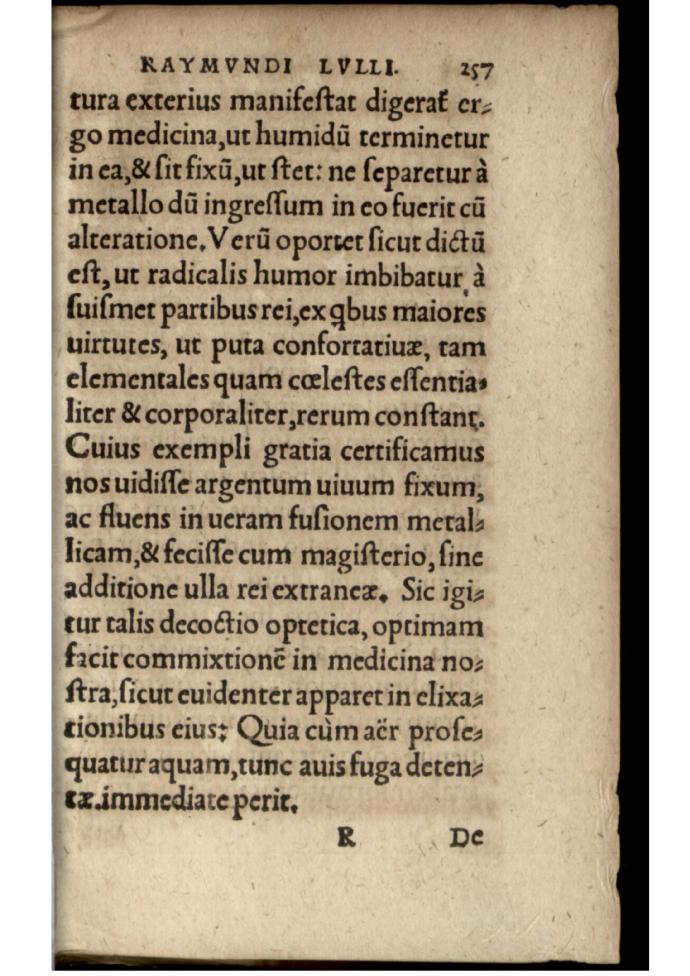 RAYMVNDI LVLLI. 257
tura exterius manifeſtat digerat̃ er⸗
go medicina,ut humidũ terminetur
in ea,& ſit fixũ,ut ſtet: ne ſeparetur à
metallo dũ ingreſſum in eo fuerit cũ
alteratione. Verũ oportet ſicut dictũ
eſt, ut radicalis humor imbibatur à
ſuiſmet partibus rei,ex ꝗbus maiores
uirtutes, ut puta confortatiuæ, tam
elementales quam cœleſtes eſſentia⸗
liter & corporaliter,rerum conſtant.
Cuius exempli gratia certificamus
nos uidiſſe argentum uiuum fixum,
ac fluens in ueram fuſionem metal⸗
licam,& feciſſe cum magiſterio, ſine
additione ulla rei extraneæ. Sic igi⸗
tur talis decoctio optetica, optimam
facit commixtionẽ in medicina no⸗
ſtra,ſicut euidenter apparet in elixa⸗
tionibus eius: Quia cùm aër proſe⸗
quatur aquam,tunc auis fuga deten⸗
tæ.immediate perit.
R De